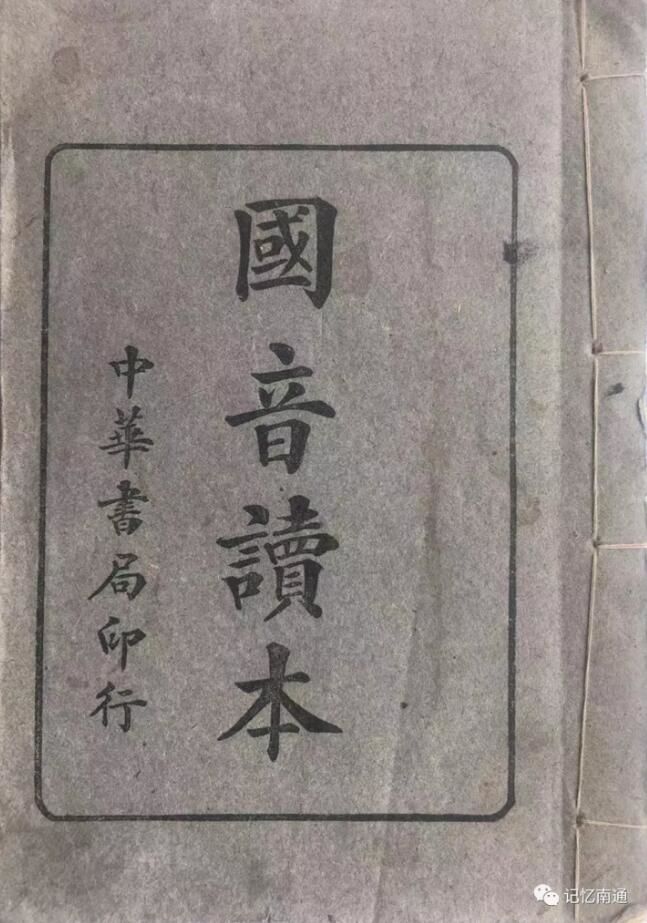 國音讀本
中華書局印行
记忆南通